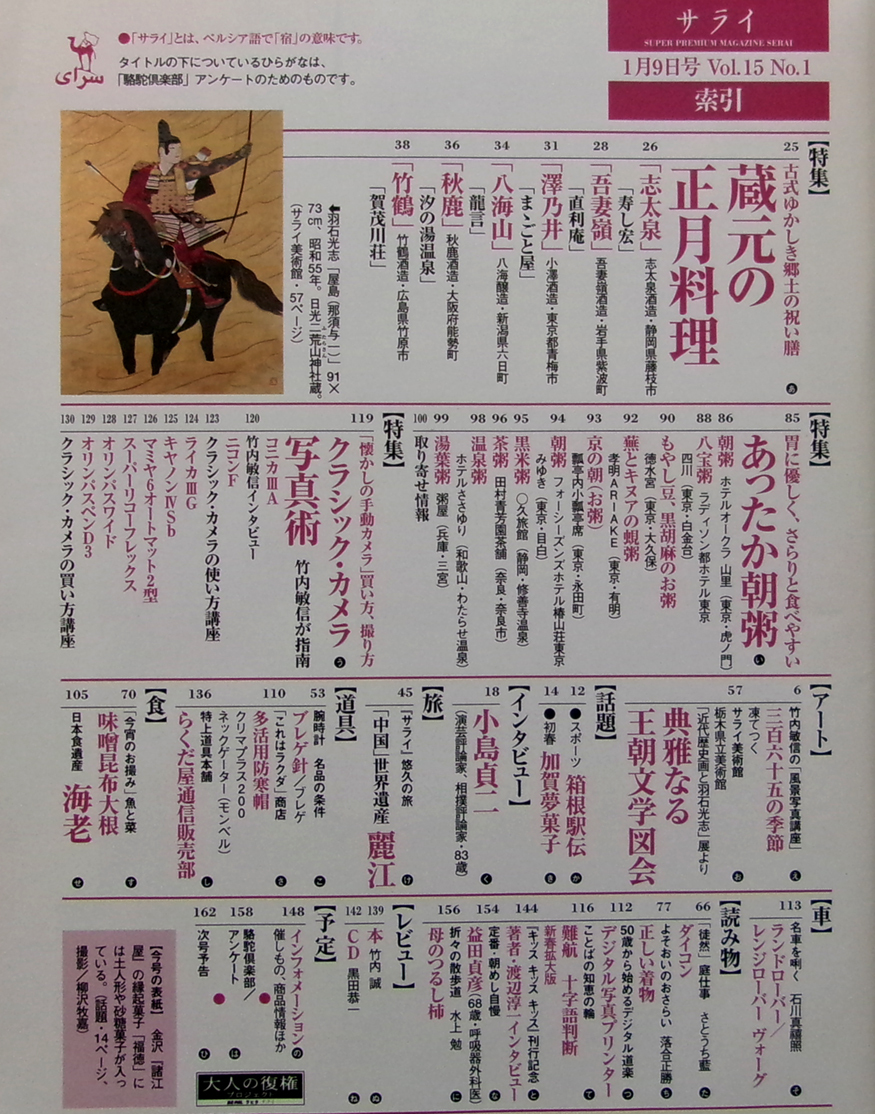 サライ
SUPER PREMIUM MAGAZINE SERAI
1月9日号 Vol.15 No.1
索引
●「サライ」とは、ペルシア語で「宿」の意味です。
タイトルの下についているひらがなは、
「駱駝倶楽部」アンケートのためのものです。
سرای
【特集】
25
古式ゆかしき郷土の祝い膳
蔵元の
正月料理
あ
26
「志太泉」 志太泉酒造・静岡県藤枝市
「寿し宏」
28
「吾妻嶺」 吾妻嶺酒造・岩手県紫波町
「直利庵」
31
「澤乃井」 小澤酒造・東京都青梅市
「まゝごと屋」
34
「八海山」 八海醸造・新潟県六日町
「龍言」
36
「秋鹿」 秋鹿酒造・大阪府能勢町
「汐の湯温泉」
38
「竹鶴」 竹鶴酒造・広島県竹原市
「賀茂川荘」
←羽石光志「屋島(那須与一)」91×
73cm、昭和55年。日光二荒山神社蔵。
(サライ美術館・57ページ)
【特集】
85
胃に優しく、さらりと食べやすい
あったか朝粥
い
86
朝粥 ホテルオークラ 山里(東京・虎ノ門)
88
八宝粥 ラディソン都ホテル東京
四川(東京・白金台)
90
もやし豆、黒胡麻のお粥
徳水宮(東京・大久保)
92
蕪とキヌアの蜆粥
孝明ARIAKE(東京・有明)
93
京の朝〈お粥〉
瓢亭内小瓢亭席(東京・永田町)
94
朝粥 フォーシーズンズホテル椿山荘東京
みゆき(東京・目白)
95
黒米粥 〇久旅館(静岡・修善寺温泉)
96
茶粥 田村青芳園茶舗(奈良・奈良市)
98
温泉粥
ホテルささゆり(和歌山・わたらせ温泉)
99
湯葉粥 粥屋(兵庫・三宮)
100
取り寄せ情報
【特集】
119
「懐かしの手動カメラ」買い方、撮り方
クラシック・カメラ
写真術 竹内敏信が指南
う
コニカⅢA
120
竹内敏信インタビュー
ニコンF
123
クラシック・カメラの使い方講座
124
ライカⅢG
125
キヤノンⅣSb
126
マミヤ6オートマット2型
127
スーパーリコーフレックス
128
オリンパスワイド
129
オリンパスペンD3
130
クラシック・カメラの買い方講座
【アート】
6
竹内敏信の「風景写真講座」
三百六十五の季節
え
凍てつく
57
サライ美術館
お
栃木県立美術館
「近代歴史画と羽石光志」展より
典雅なる
王朝文学図会
【話題】
12
●スポーツ 箱根駅伝
か
14
●初春 加賀夢菓子
き
【インタビュー】
18
小島貞二
(演芸評論家、相撲評論家・83歳)
く
【旅】
45
「サライ」悠久の旅
「中国」世界遺産 麗江
け
【道具】
53
腕時計 名品の条件
ブレゲ針/ブレゲ
こ
110
「これはラクダ」商店
多活用防寒帽
さ
クリマプラス200
ネックゲーター(モンベル)
136
特上道具本舗
らくだ屋通信販売部
し
【食】
70
「今宵のお摘み」魚と菜
味噌昆布大根
す
105
日本食遺産 海老
せ
【車】
113
名車を唎く 石川真禧照
ランドローバー/
レンジローバー ヴォーグ
そ
【読み物】
66
「徒然」庭仕事 さとうち藍
ダイコン
た
77
よそおいのおさらい 落合正勝
正しい着物
ち
112
50歳から始めるデジタル道楽
デジタル写真プリンター
つ
116
ことばの知恵の輪
難航 十字語判断
て
新春拡大版
144
『キッス キッス キッス』刊行記念
著者・渡辺淳一インタビュー
と
154
定番・朝めし自慢
益田貞彦(68歳・呼吸器外科医)
な
156
折々の散歩道 水上 勉
母のつるし柿
に
【レビュー】
139
本 竹内 誠
ぬ
142
CD 黒田恭一
ね
【予定】
148
インフォメーション
催しもの、商品情報ほか
の
158
駱駝倶楽部/
アンケート
は
162
次号予告
ひ
大人の復権
プロジェクト
【今号の表紙】 金沢「諸江
屋」の縁起菓子「福徳」に
は土人形や砂糖菓子が入っ
ている。(話題・14ページ、
撮影/柳沢牧嘉)